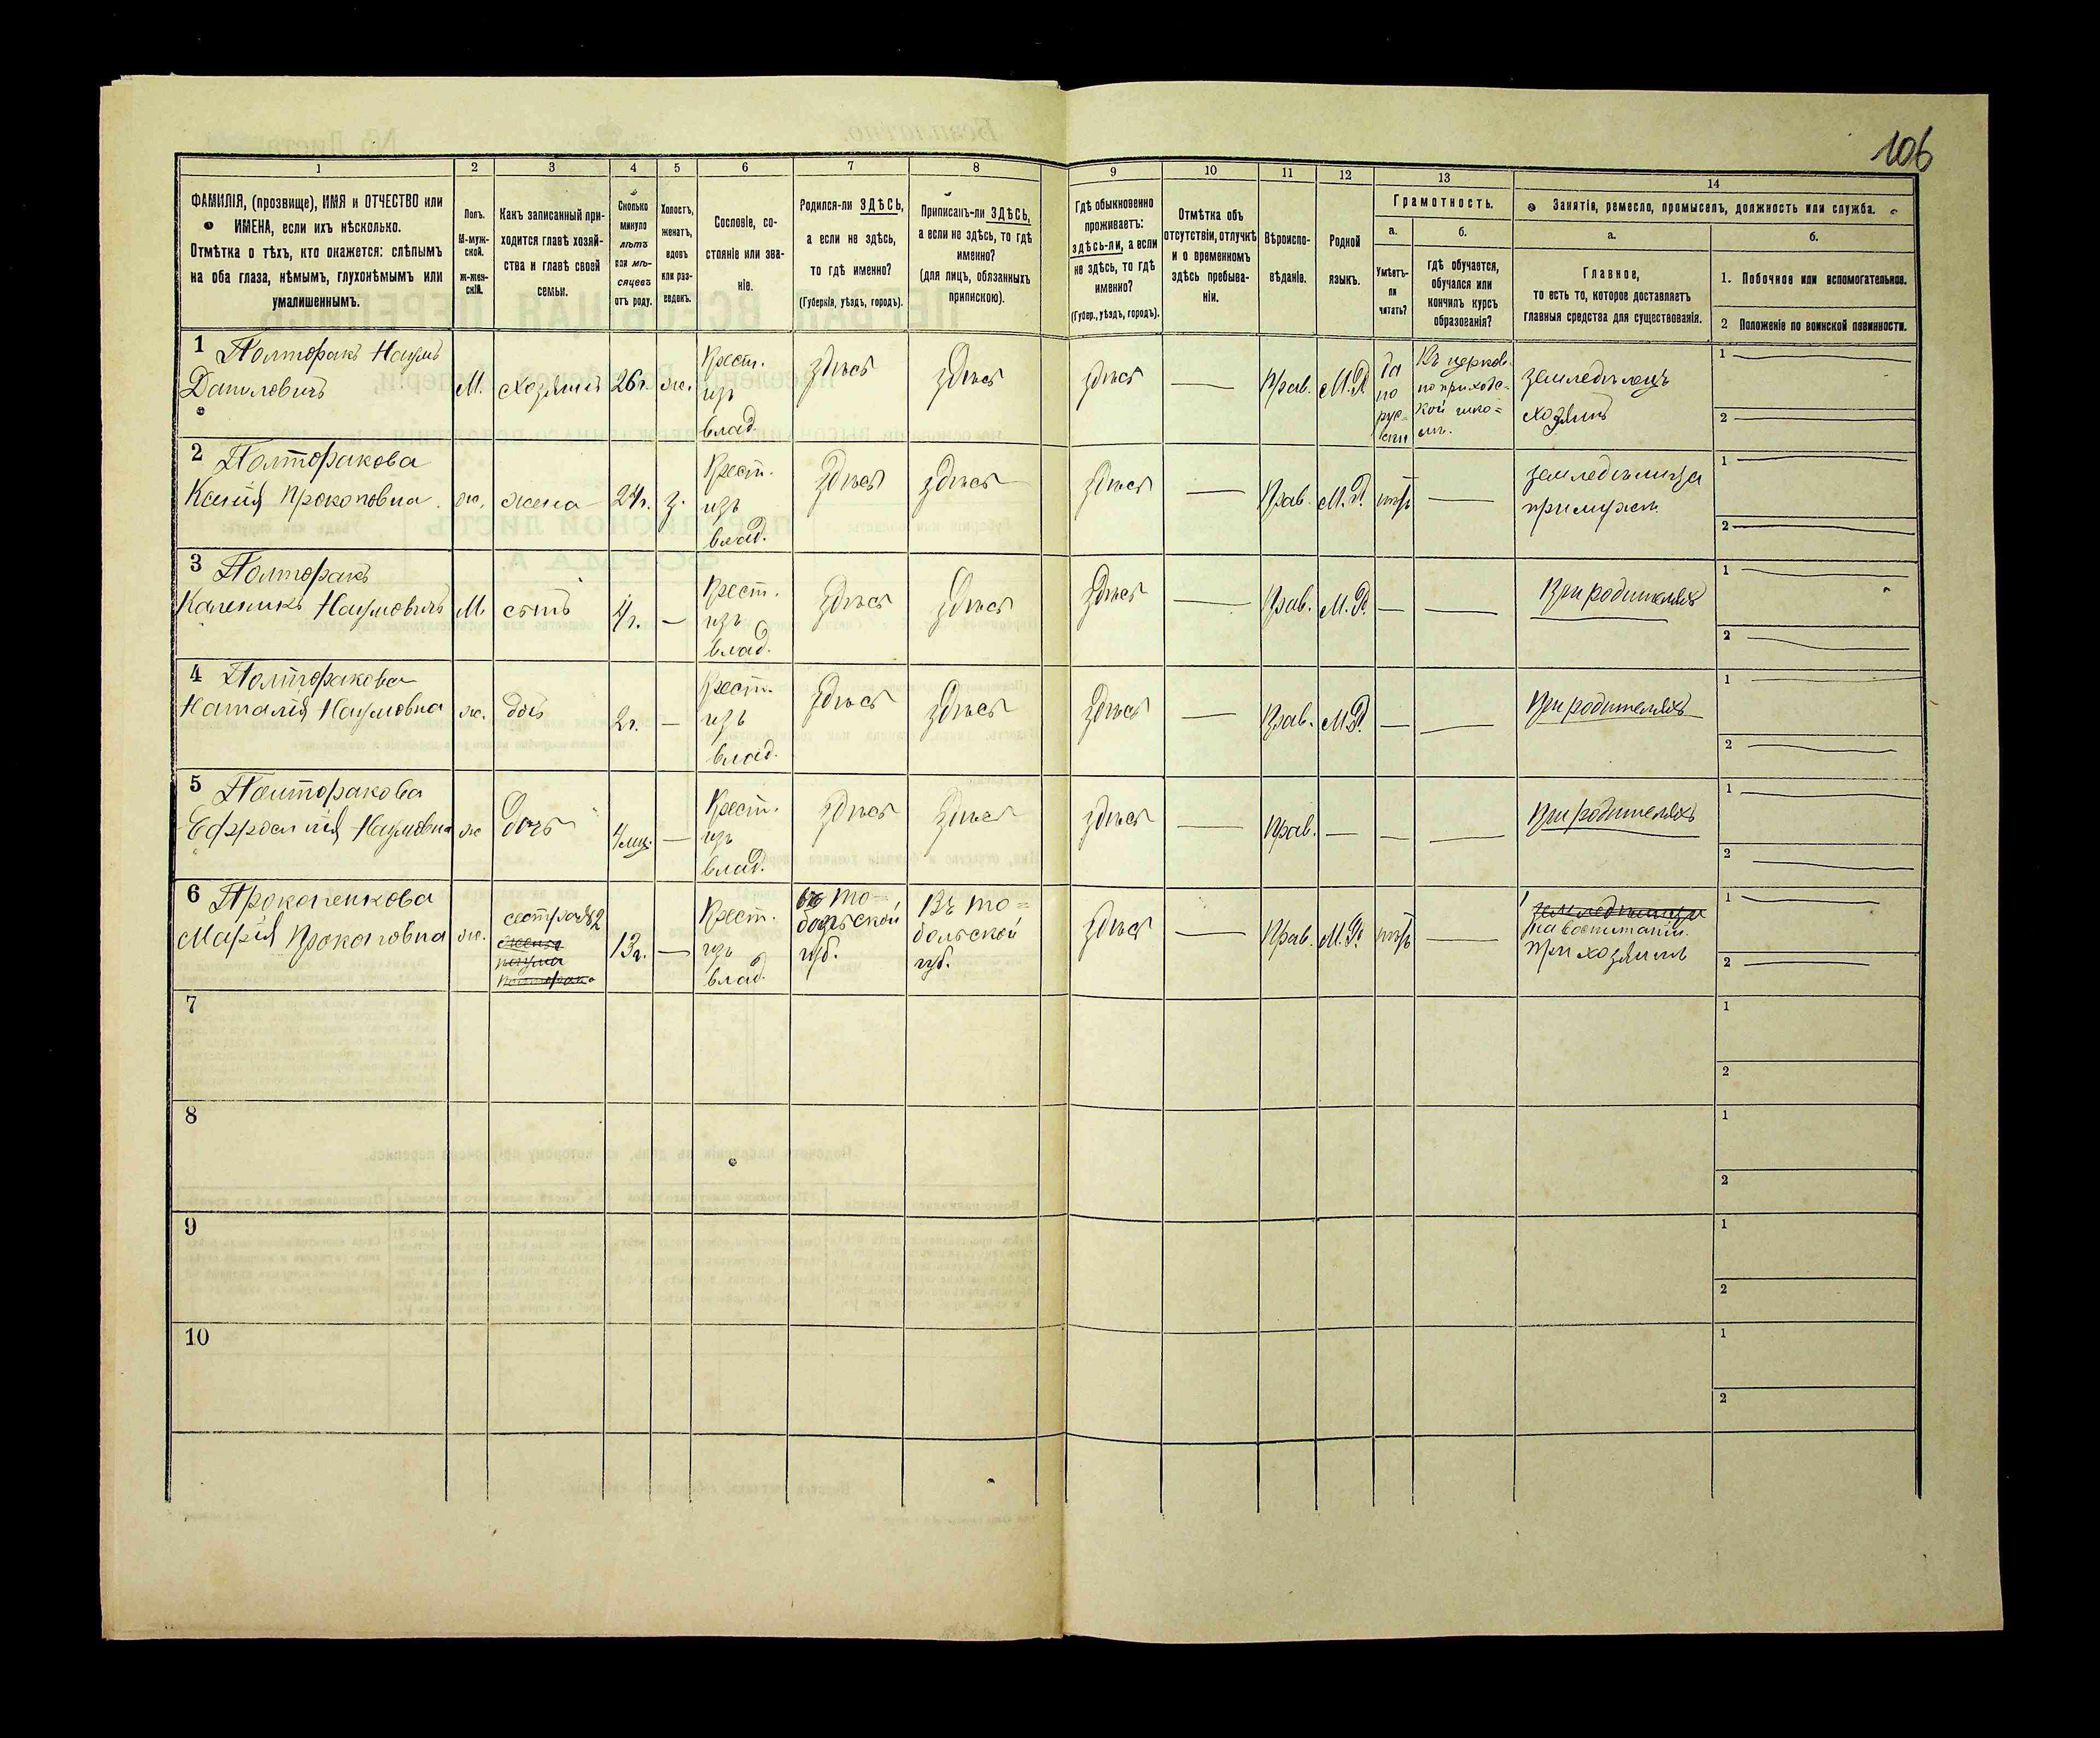 106
1
2
3
4
5
6
7
8
9
10
11
12
13
14
ФАМИЛІЯ, (прозвище), ИМЯ и ОТЧЕСТВО или
ИМЕНА, если ихъ нѣсколько.
Отмѣтка о тѣхъ, кто окажется: слѣпымъ
на оба глаза, нѣмымъ, глухонѣмымъ или
умалишеннымъ.
Полъ.
М-муж-
ской.
ж-жен-
скій.
Какъ записанный при-
ходится главѣ хозяй-
ства и главѣ своей
семьи.
Сколько
минуло
лѣтъ
или мѣ-
сяцевъ
отъ роду.
Холостъ,
женатъ,
вдовъ
или раз-
веденъ.
Сословіе, со-
стояніе или зва-
ніе.
Родился-ли ЗДѢСЬ,
а если не здѣсь,
то гдѣ именно?
(Губернія, уѣздъ, городъ).
Приписанъ-ли ЗДѢСЬ,
а если не здѣсь, то гдѣ
именно?
(для лицъ, обязанныхъ
припискою).
Гдѣ обыкновенно
проживаетъ:
здѣсь-ли, а если
не здѣсь, то гдѣ
именно?
(Губер., уѣздъ, городъ).
Отмѣтка объ
отсутствіи, отлучкѣ
и о временномъ
здѣсь пребыва-
ніи.
Вѣроиспо-
вѣданіе.
Родной
языкъ.
Грамотность.
а.
Умѣетъ-
ли
читать?
б.
гдѣ обучается,
обучался или
кончилъ курсъ
образованія?
Занятіе, ремесло, промыселъ, должность или служба.
а.
Главное,
то есть то, которое доставляетъ
главныя средства для существованія.
б.
1. Побочное или вспомогательное.
2 Положеніе по воинской повинности.
1 Полторакъ Наумъ
Даниловичъ
М.
хозяинъ
26 г.
ж.
Крест.
изъ
влад.
здѣсь
здѣсь
здѣсь
Прав.
М.Р.
да
по
рус-
ски
Въ церков-
но приходс-
кой шко=
лѣ.
земледѣлецъ
хозяинъ
1
2
2 Полторакова
Ксенія Прокоповна
ж.
жена
24 г.
з.
Крест.
изъ
влад.
здѣсь
здѣсь
здѣсь
Прав.
М.Р.
нѣтъ
земледѣлица
при мужѣ
1
2
3 Полторакъ
Каленикъ Наумовичъ
М.
сынъ
4 г.
Крест.
изъ
влад.
здѣсь
здѣсь
здѣсь
Прав.
М.Р.
При родителяхъ
1
2
4 Полторакова
Наталія Наумовна
ж.
дочь
2 г.
Крест.
изъ
влад.
здѣсь
здѣсь
здѣсь
Прав.
М.Р.
При родителяхъ
1
2
5 Полторакова
Ефросинія Наумовна
ж
дочь
4 мц.
Крест.
изъ
влад.
здѣсь
здѣсь
здѣсь
Прав.
При родителяхъ
1
2
6 Прокопенкова
Марія Прокоповна
ж.
сестра №2
жена
Наума
Полторака
13 г.
Крест.
изъ
влад.
въ То-
больской
губ.
Въ То=
больской
губ.
здѣсь
Прав.
М.Р.
нѣтъ
земледѣлица
на воспитаніи
при хозяинѣ
1
2
7
1
2
8
1
2
9
1
2
10
1
2